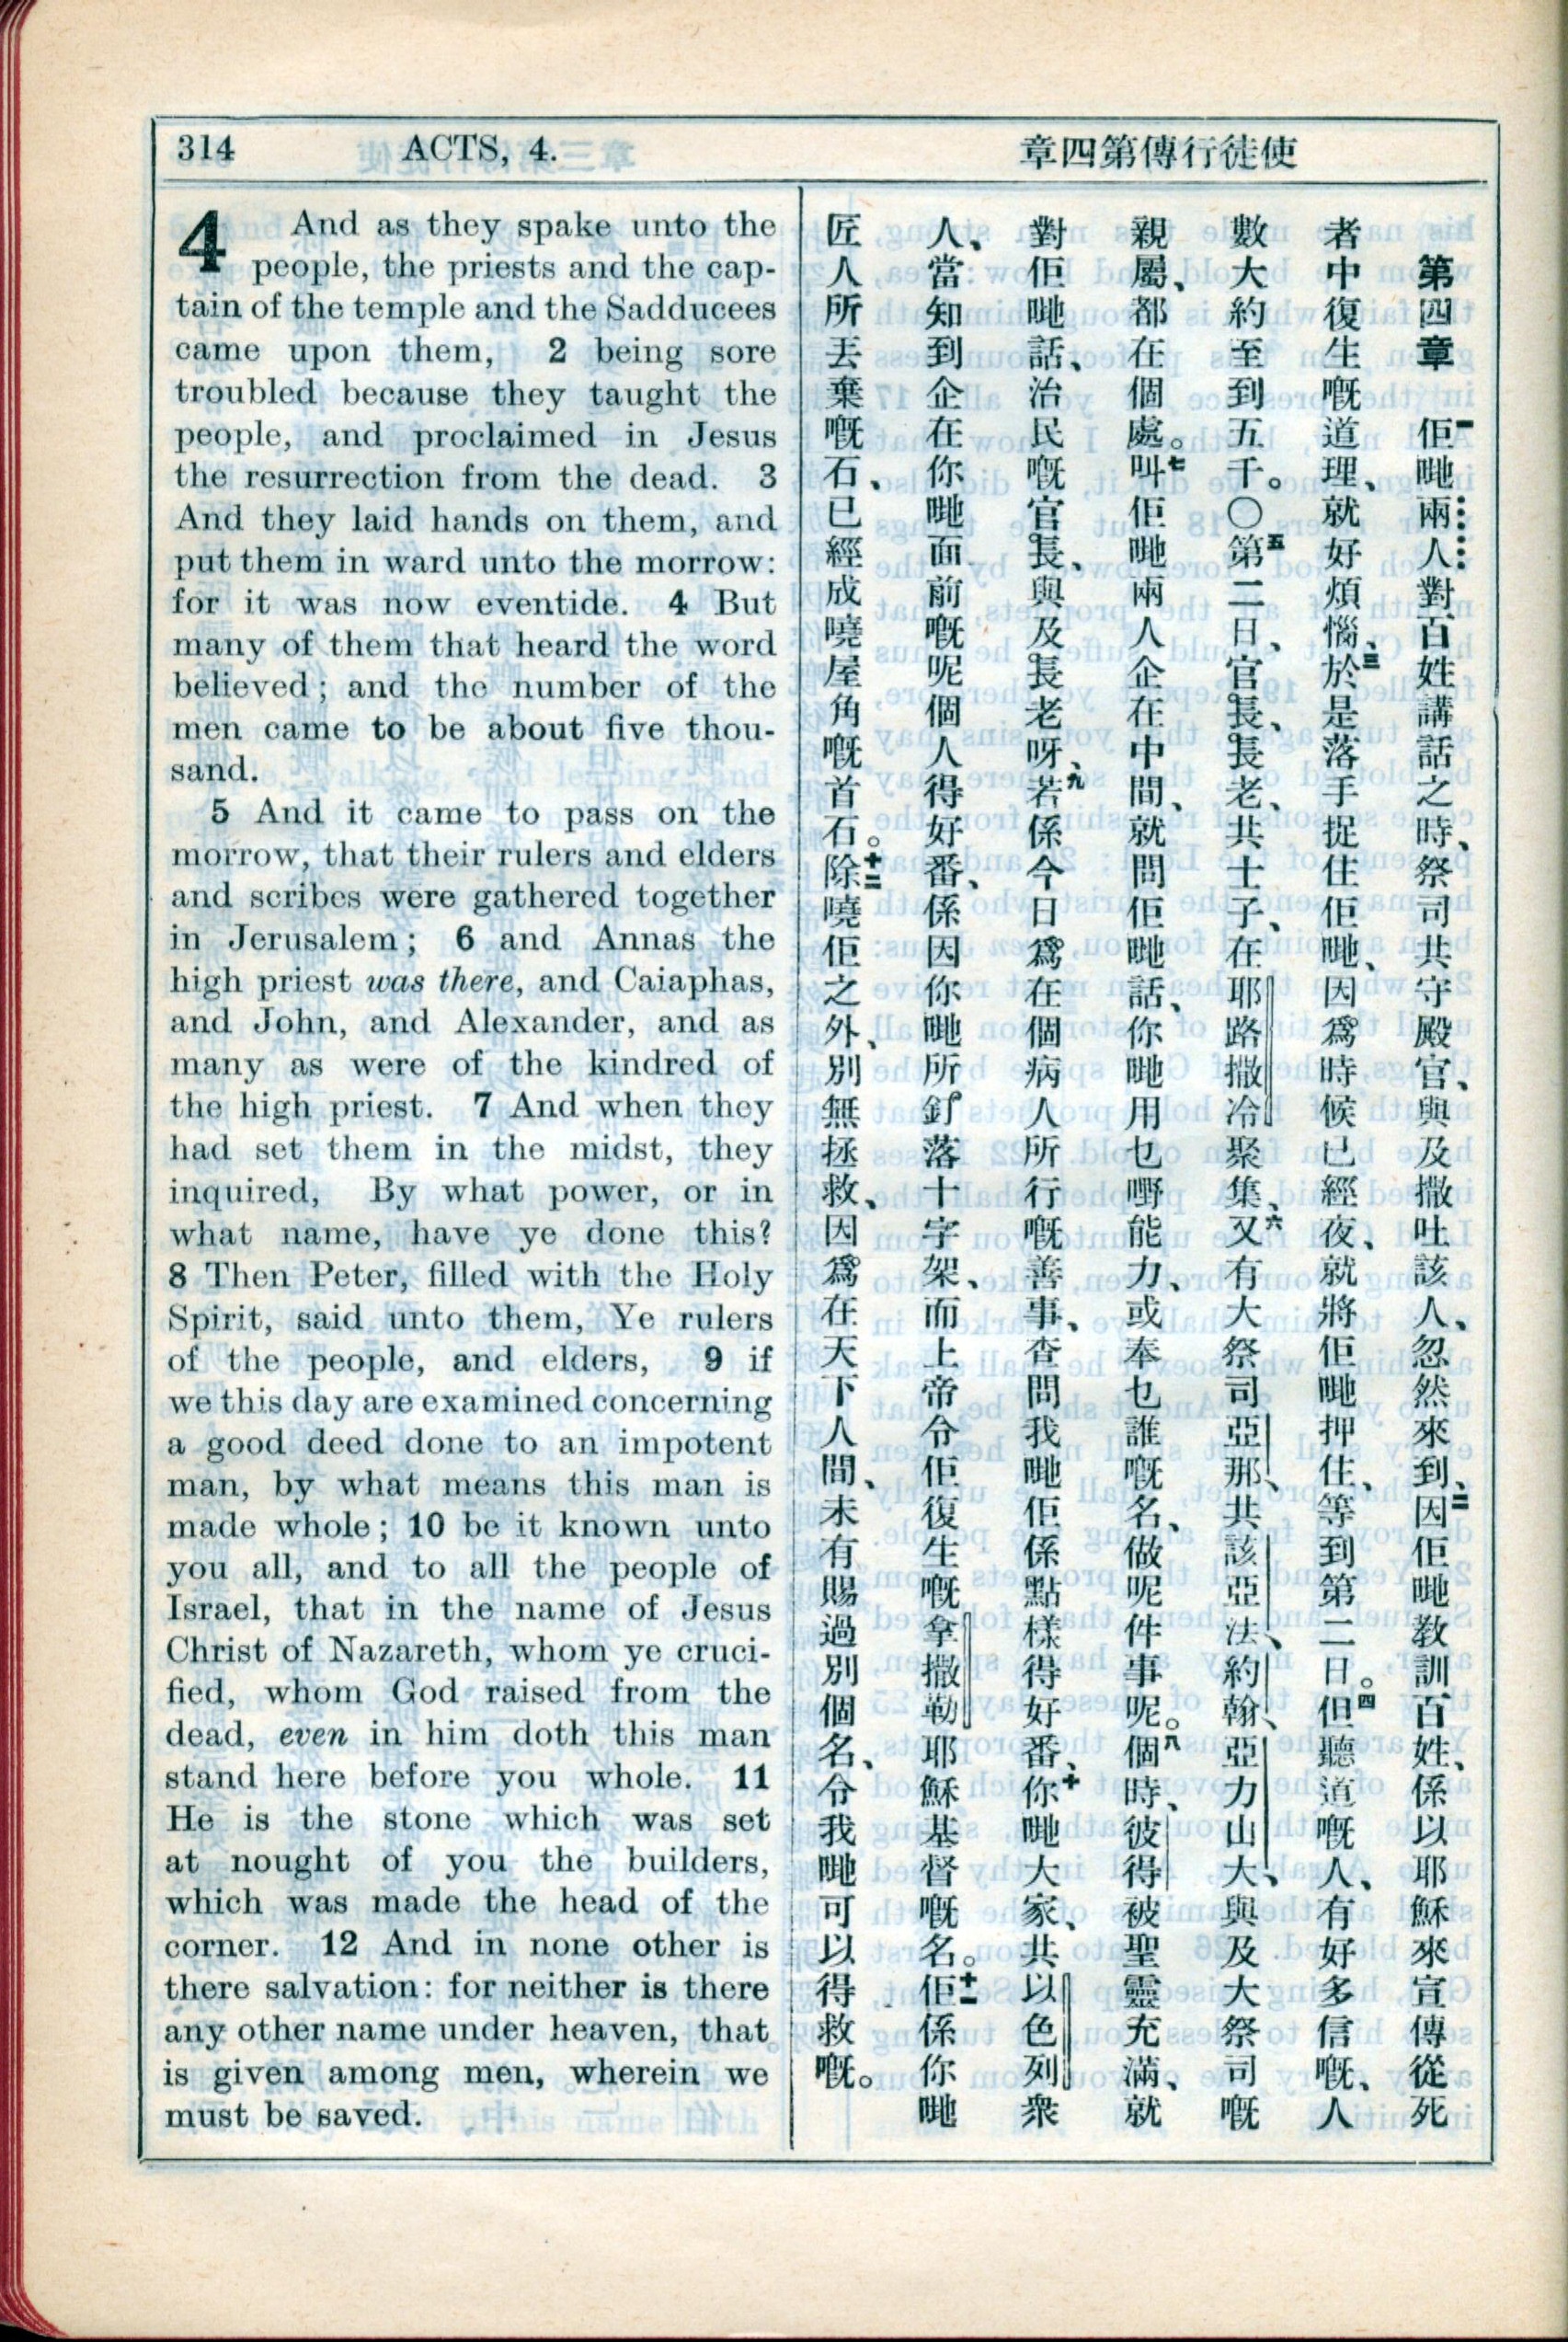 314 ACTS, 4.
章四第傳行徒使
4 And as they spake unto the
people, the priests and the cap-
tain of the temple and the Sadducees
came upon them, 2 being sore
troubled because they taught the
people, and proclaimed in Jesus
the resurrection from the dead. 3
And they laid hands on them, and
put them in ward unto the morrow:
for it was now eventide. 4 But
many of them that heard the word
believed; and the number of the
men came to be about five thou-
sand.
5 And it came to pass on the
morrow, that their rulers and elders
and scribes were gathered together
in Jerusalem; 6 and Annas the
high priest was there, and Caiaphas,
and John, and Alexander, and as
many as were of the kindred of
the high priest. 7 And when they
had set them in the midst, they
inquired, By what power, or in
what name, have ye done this?
8 Then Peter, filled with the Holy
Spirit, said unto them, Ye rulers
of the people, and elders, 9 if
we this day are examined concerning
a good deed done to an impotent
man, by what means this man is
made whole; 10 be it known unto
you all, and to all the people of
Israel, that in the name of Jesus
Christ of Nazareth, whom ye cruci-
fied, whom God raised from the
dead, even in him doth this man
stand here before you whole. 11
He is the stone which was set
at nought of you the builders,
which was made the head of the
corner. 12 And in none other is
there salvation: for neither is there
any other name under heaven, that
is given among men, wherein we
must be saved.
第四章 一佢哋兩人對百姓講話之時、祭司共守殿官、與及撒吐該人、忽然來到、二因佢哋教訓百姓、係以耶穌來宣傳從死
者中復生嘅道理、就好煩惱、三於是落手捉住佢哋、因爲時候已經夜、就將佢哋押住、等到第二日。四但聽道嘅人、有好多信嘅、人
數大約至到五千。〇五第二日、官長、長老、共士子、在耶路撒冷聚集、六又有大祭司亞那、共該亞法、約翰、亞力山大、與及大祭司嘅
親屬、都在個處。七叫佢哋兩人企在中間、就問佢哋話、你哋用乜嘢能力、或奉乜誰嘅名、做呢件事呢。八個時、彼得被聖靈充滿、就
對佢哋話、治民嘅官長、與及長老呀、九若係今日爲在個病人所行嘅善事、查問我哋佢係點樣得好番、十你哋大家、共以色列衆
人、當知到企在你哋面前嘅呢個人得好番、係因你哋所釘落十字架、而上帝令佢復生嘅拿撒勒耶穌基督嘅名。十一佢係你哋
匠人所丟棄嘅石、已經成曉屋角嘅首石。十二除曉佢之外、別無拯救、因爲在天下人間、未有賜過別個名、令我哋可以得救嘅。